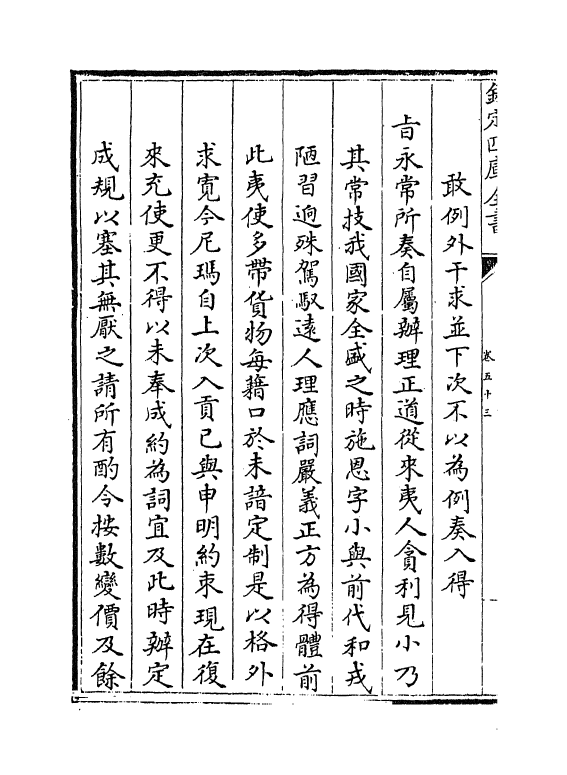 欽定四庫全書
卷五十三
敢例外干求並下次不以為例奏入得
旨永常所奏自屬辦理正道從來夷人貪利見小乃
其常技我國家全盛之時施恩字小與前代和戎
陋習逈殊駕馭遠人理應詞嚴義正方為得體前
此夷使多帶貨物每藉口於未諳定制是以格外
求寛今尼瑪自上次入貢已與申明約束現在復
來充使更不得以未奉成約為詞宜及此時辦定
成規以塞其無厭之請所有酌令按數變價及餘